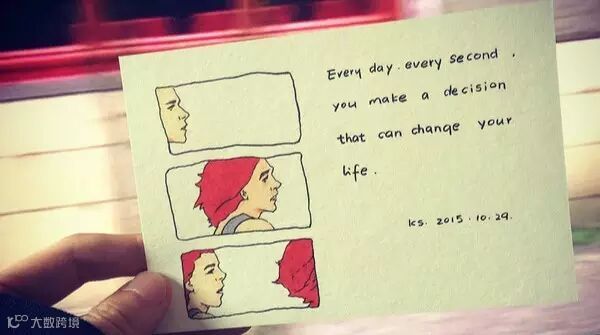 Every day. every second.
you make a decision
that can change your
life.
ks. 2015.10.29.
10100 大数跨境